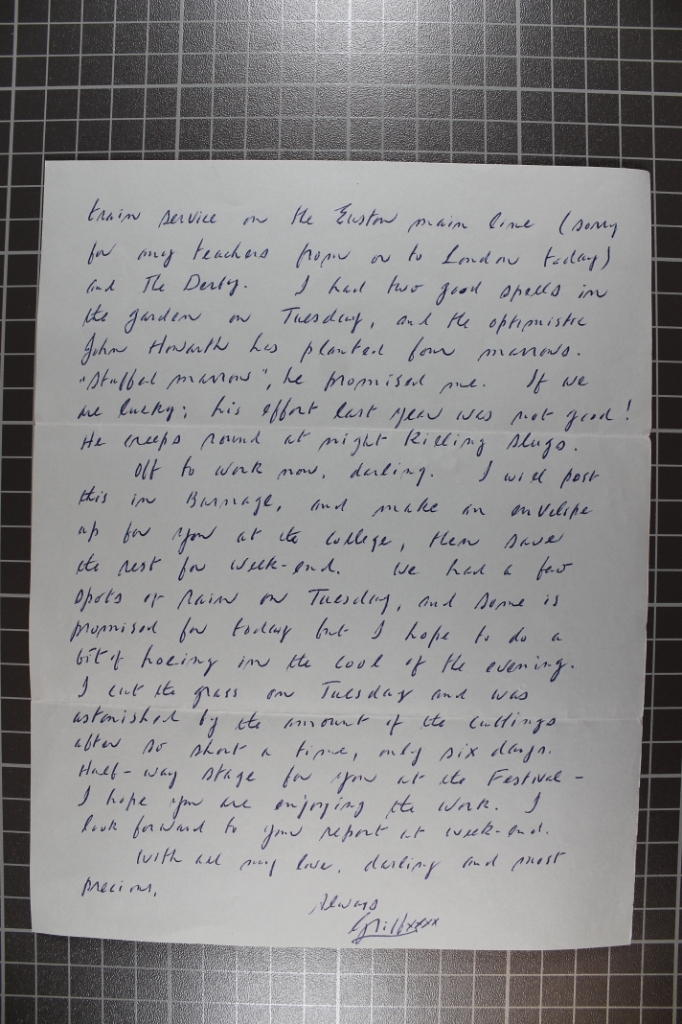 train service on the Euston main line (sorry
for any teachers from or to London today)
and The Derby. I had two good spells in
the garden on Tuesday, and the optimistic
John Howarth has planted four marrows.
"Stuffed marrow", he promised me. If we
are lucky; his effort last year was not good!
He creeps round at night killing slugs.
Off to work now, darling. I will post
this in Burnage, and make an envelope
up for you at the college, then save
the rest for week-end. We had a few
spots of rain on Tuesday, and some is
promised for today but I hope to do a
bit of hoeing in the cool of the evening.
I cut the grass on Tuesday and was
astonished by the amount of the cuttings
after so short a time, only six days.
Half-way stage for you at the Festival -
I hope you are enjoying the work. I
look forward to your report at week-end.
With all my love, darling and most
precious,
Always
xxxx